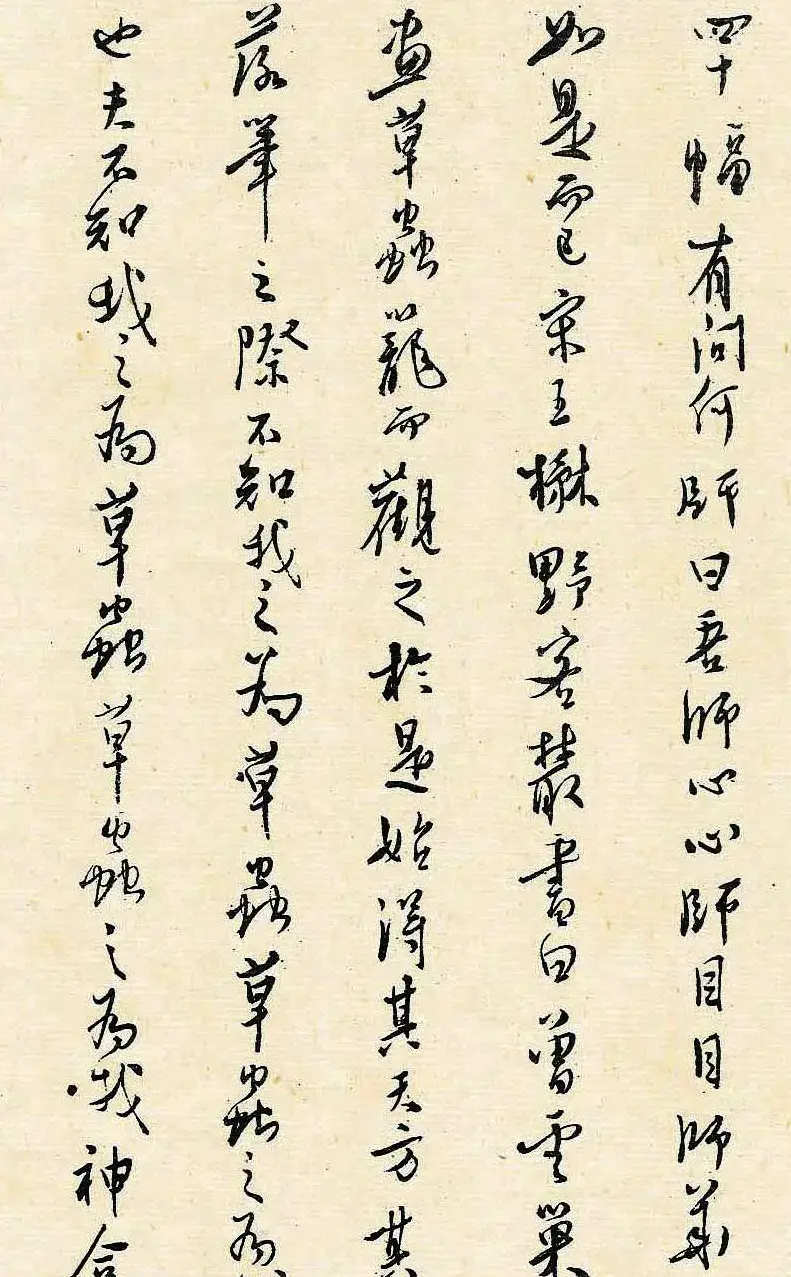 四十幅有问何師曰吾師心心師目目師華
如是而已宋王楙野客叢書曰曾雲巢
畫草蟲籠而觀之於是始得其天方其
落筆之際不知我之為草蟲草蟲之為
也夫不知我之為草蟲草蟲之為我神合